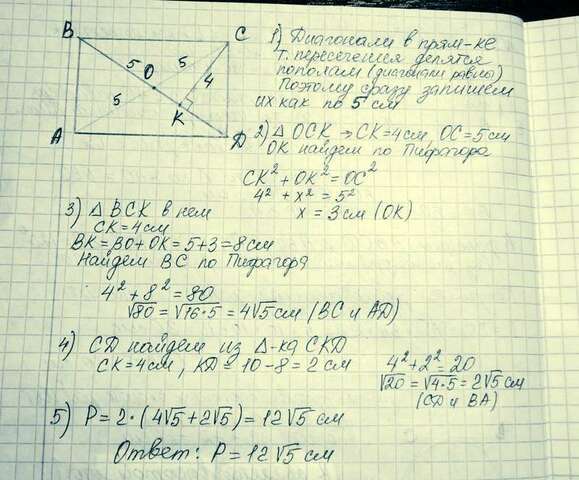 B
C
5
5
O
4
5
K
A
D
1) Диагонали в прям-ке
т. пересечения делятся
пополам (диагонали равны)
Поэтому сразу запишем
их как по 5 см
2) △ OCK → CK = 4см, OC = 5см
OK найдем по Пифагора
CK² + OK² = OC²
4² + x² = 5²
x = 3см (OK)
3) △ BCK в нем
CK = 4см
BK = BO + OK = 5 + 3 = 8см
Найдем BC по Пифагоря
4² + 8² = 80
√80 = √16·5 = 4√5 см (BC и AD)
4) CD найдем из △-ка CKD
CK = 4см, KD = 10 - 8 = 2 см
4² + 2² = 20
√20 = √4·5 = 2√5 см
(CD и BA)
5) P = 2 · (4√5 + 2√5) = 12√5 см
Ответ: P = 12√5 см